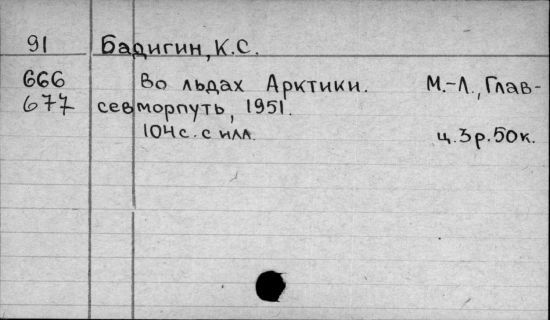 91 Бадигин, К.С.
666 Во льдах Арктики. М.-Л., Глав-
677 севморпуть, 1951.
104с. с илл. ц. 3р. 50к.